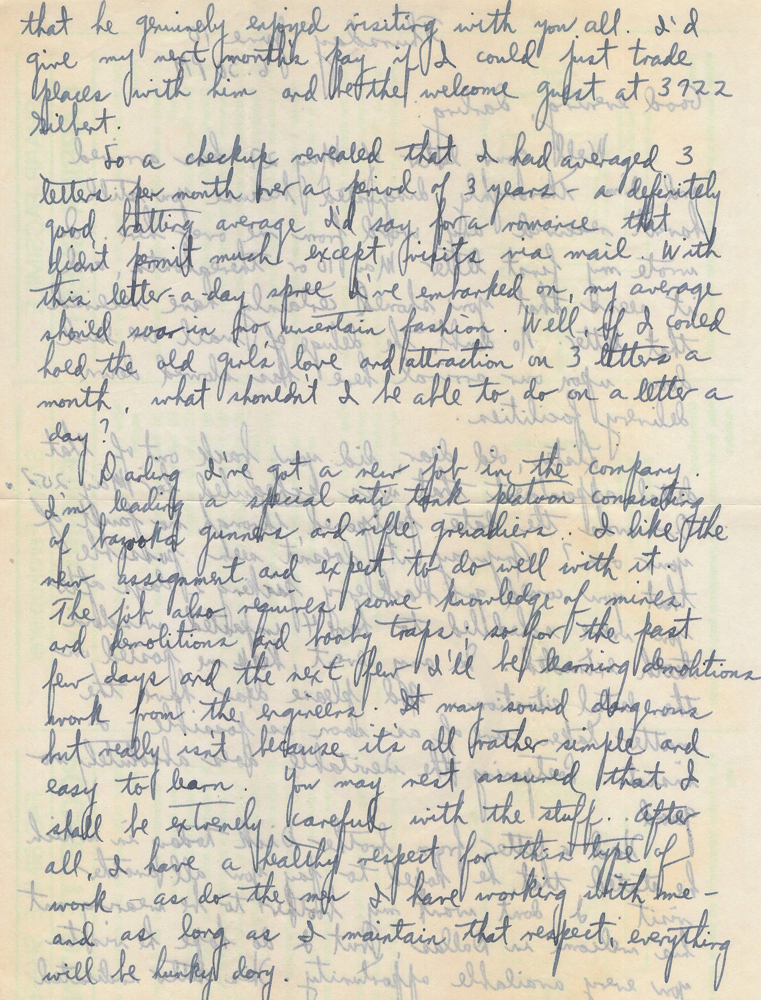 that he genuinely enjoyed visiting with you all. I'd
give my next month's pay if I could just trade
places with him and be the welcome guest at 3922
Gilbert.
So a checkup revealed that I had averaged 3
letters per month over a period of 3 years - a definitely
good batting average I'd say for a romance that
didn't permit much except visits via mail. With
this letter-a-day spree I've embarked on, my average
should soar in no uncertain fashion. Well, if I could
hold the old girl's love and attraction on 3 letters a
month, what shouldn't I be able to do on a letter a
day?
Darling I've got a new job in the company.
I'm leading a special anti tank platoon consisting
of bazooka gunners and rifle grenadiers. I like the
new assignment and expect to do well with it.
The job also requires some knowledge of mines
and demolitions and booby traps; so for the past
few days and the next few I'll be learning demolitions
work from the engineers. It may sound dangerous
but really isn't because it's all rather simple and
easy to learn. You may rest assured that I
shall be extremely careful with the stuff. After
all, I have a healthy respect for this type of
work - as do the men I have working with me -
and as long as I maintain that respect, everything
will be hunky dory.